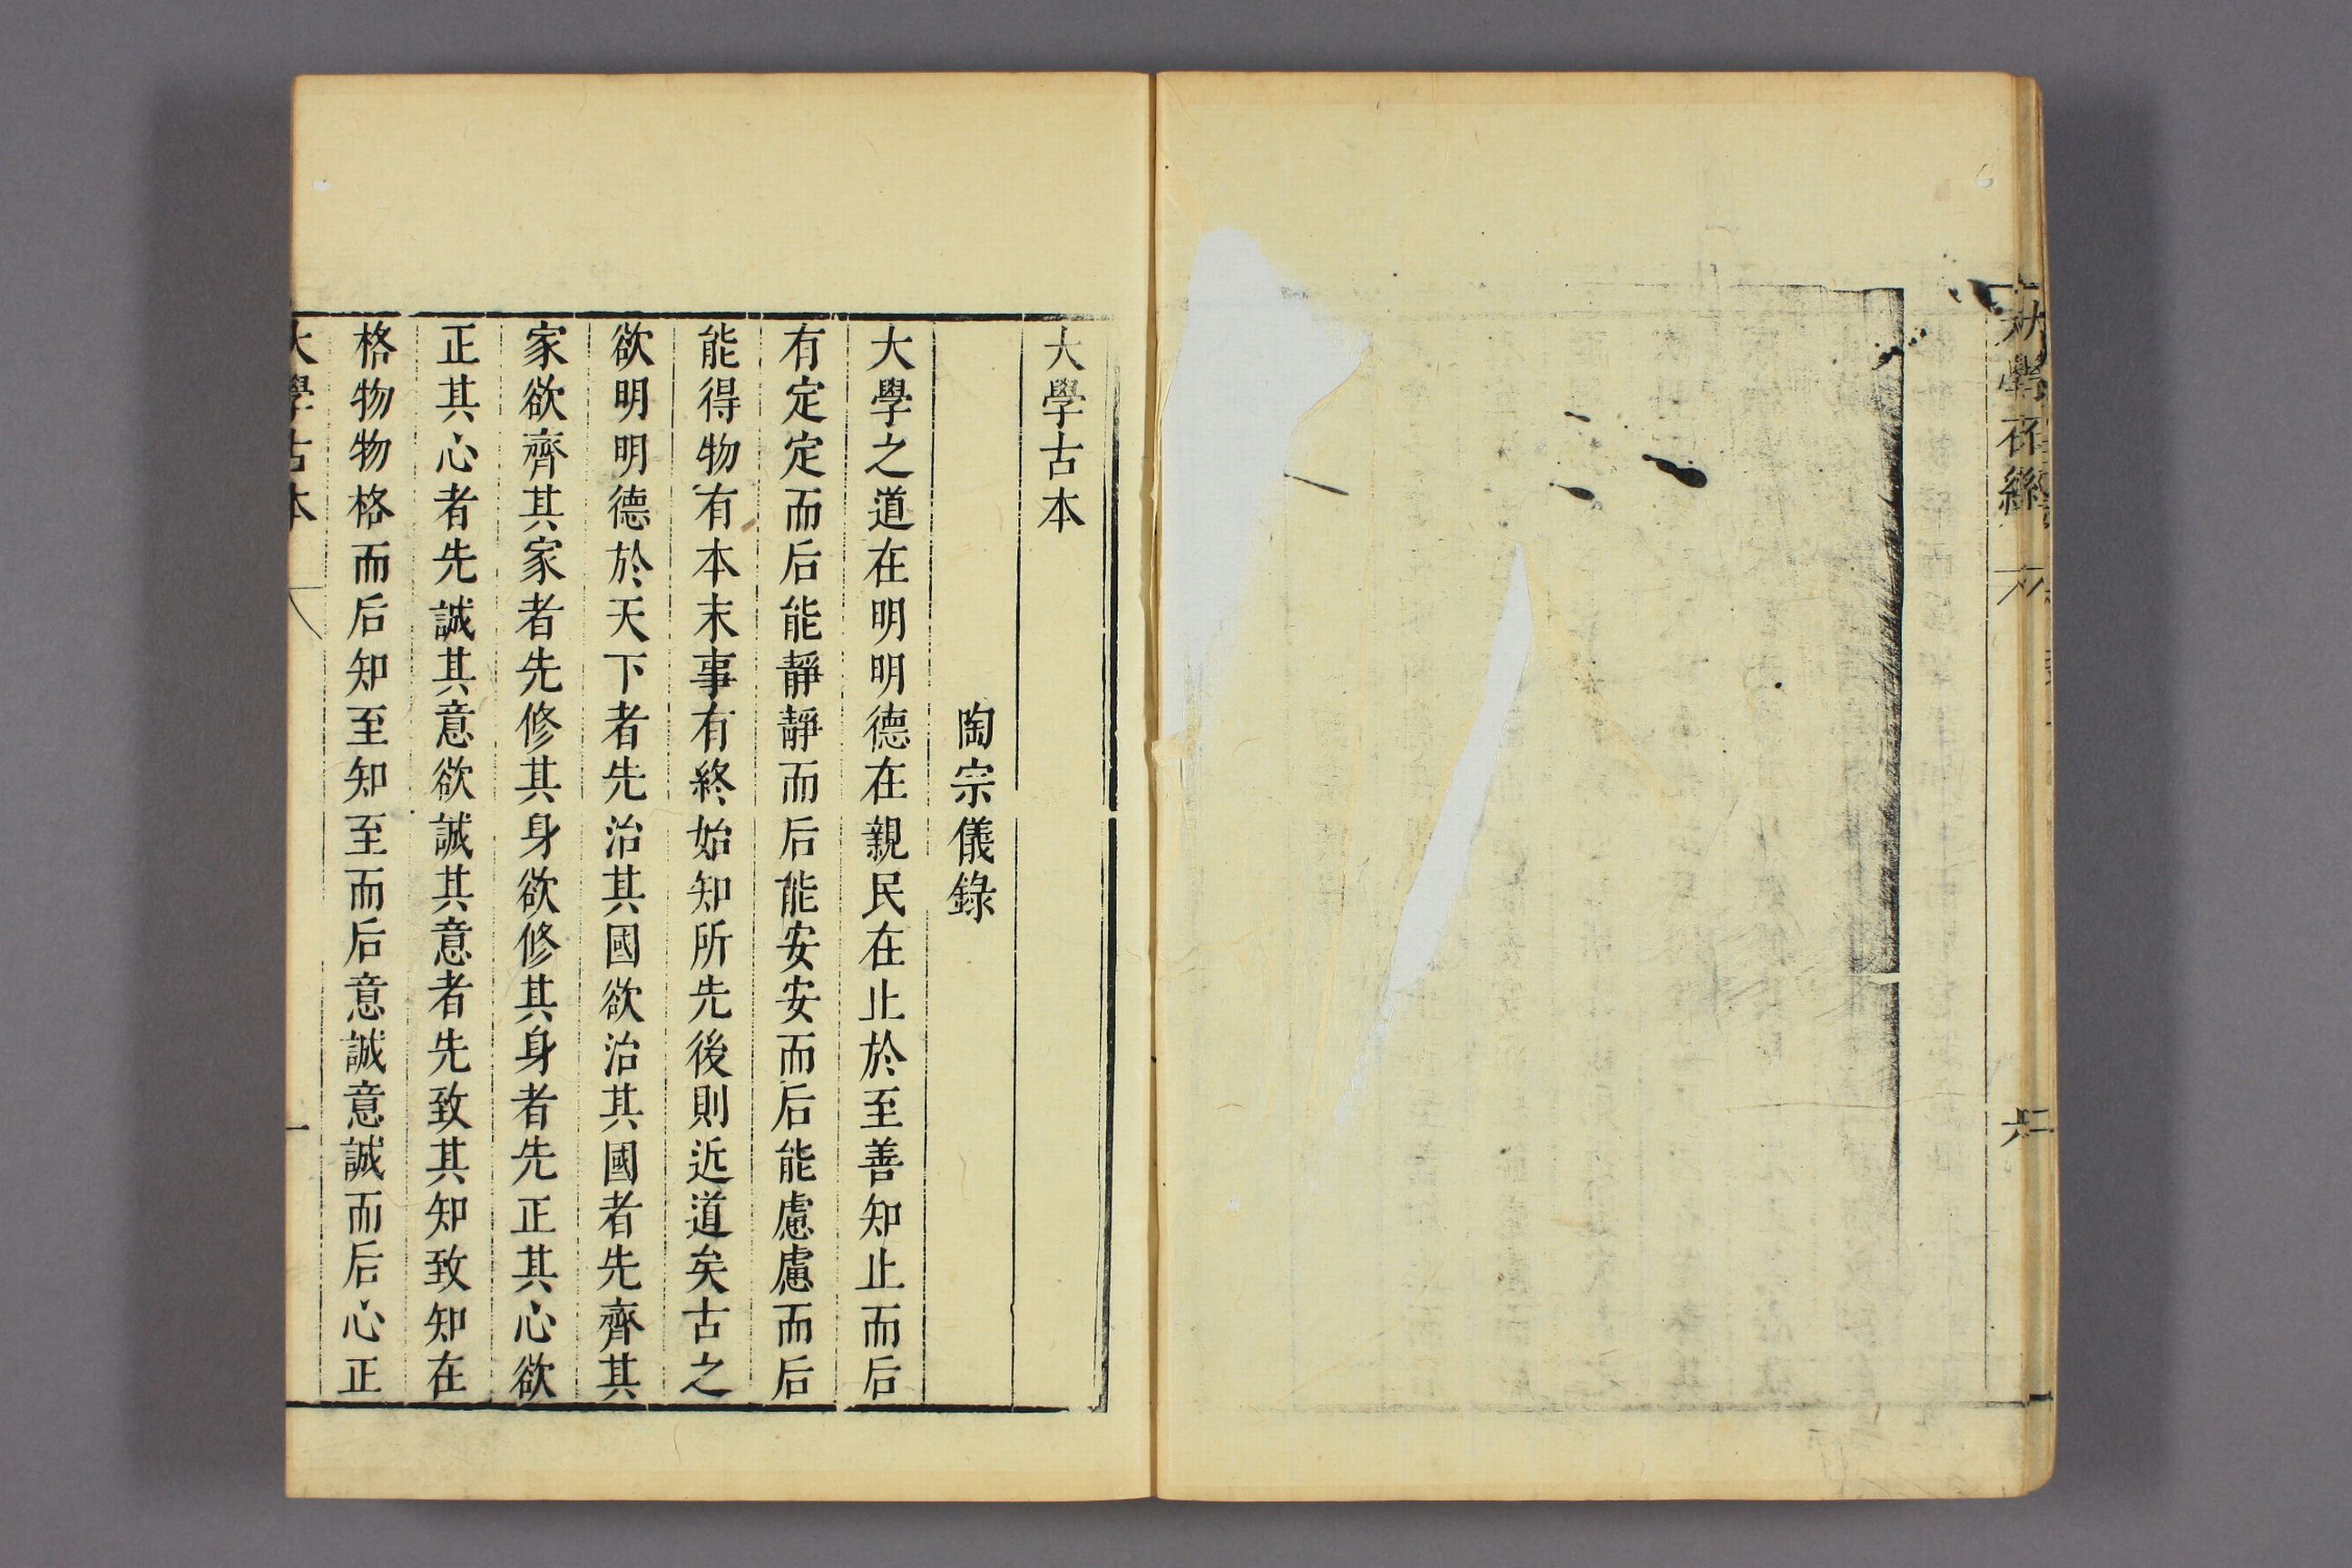 大學古本
陶宗儀錄
大學之道在明明德在親民在止於至善知止而后
有定定而后能靜靜而后能安安而后能慮慮而后
能得物有本末事有終始知所先後則近道矣古之
欲明明德於天下者先治其國欲治其國者先齊其
家欲齊其家者先修其身欲修其身者先正其心欲
正其心者先誠其意欲誠其意者先致其知致知在
格物物格而后知至知至而后意誠意誠而后心正
大學古本 一